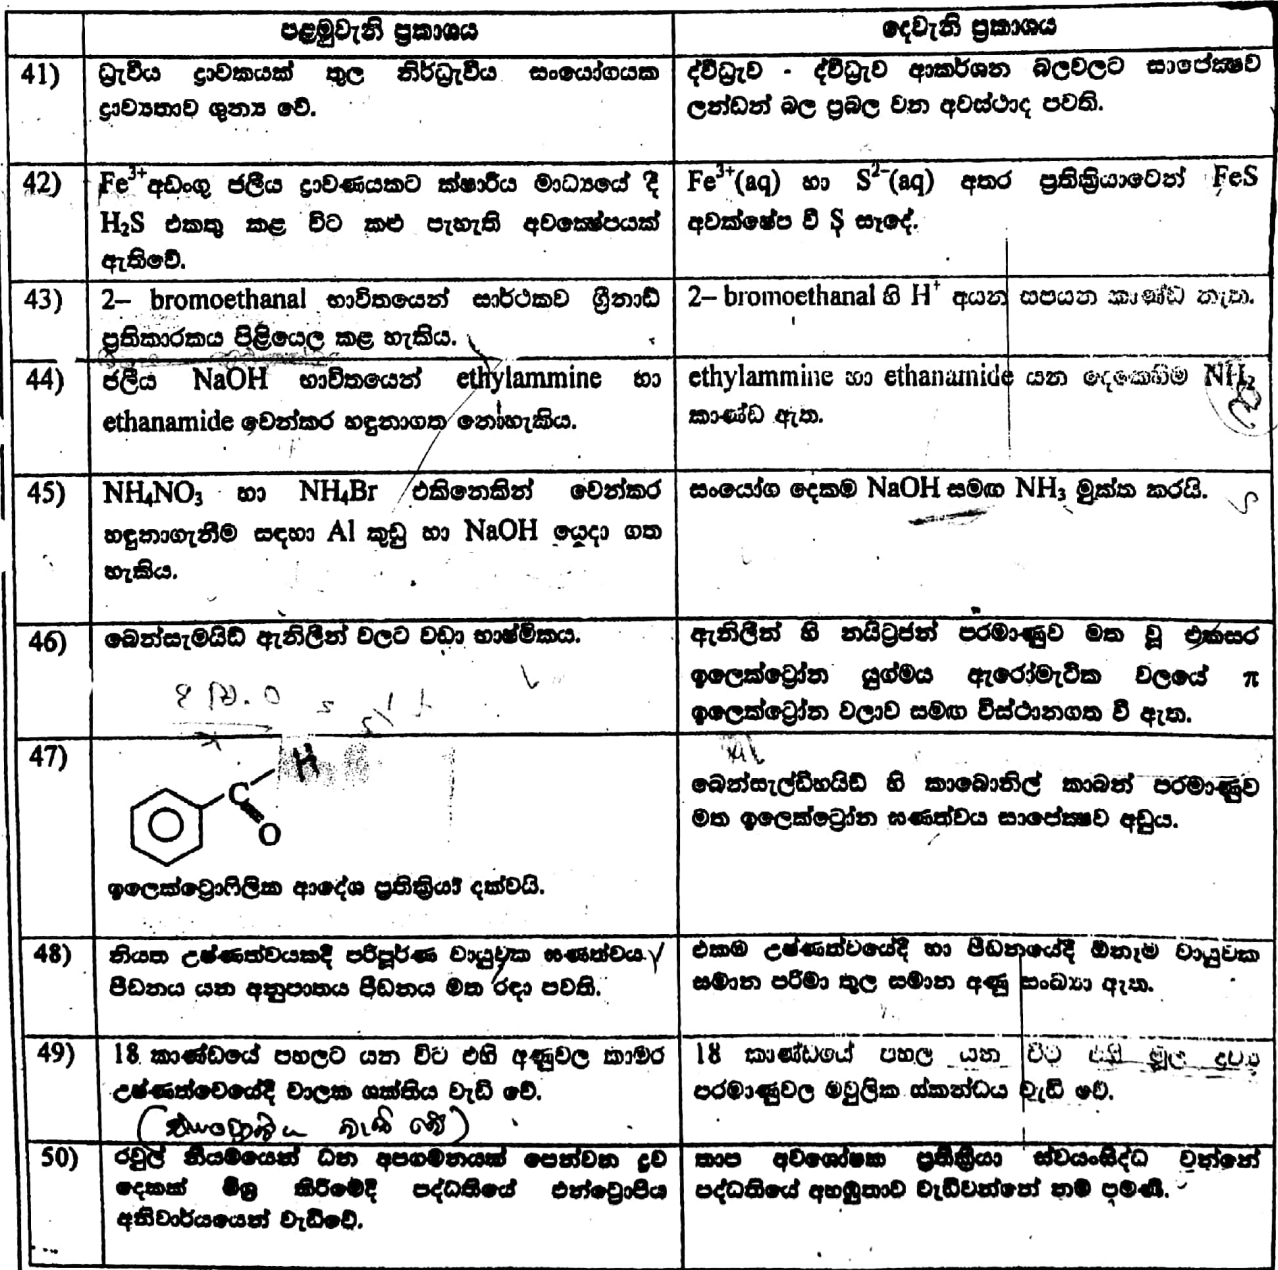 පළමුවැනි ප්‍රකාශය
දෙවැනි ප්‍රකාශය
41)
ධ්‍රැවීය ද්‍රාවකයක් තුල නිර්ධ්‍රැවීය සංයෝගයක
ද්‍රාව්‍යතාව ශුන්‍ය වේ.
ද්විධ්‍රැව - ද්විධ්‍රැව ආකර්ශන බලවලට සාපේක්ෂව
ලන්ඩන් බල ප්‍රබල වන අවස්ථාද පවති.
42)
Fe³⁺අඩංගු ජලීය ද්‍රාවණයකට ක්ෂාරීය මාධ්‍යයේ දී
H₂S එකතු කළ විට කළු පැහැති අවක්ෂේපයක්
ඇතිවේ.
Fe³⁺(aq) හා S²⁻(aq) අතර ප්‍රතික්‍රියාවෙන් FeS
අවක්ෂේප වී S සෑදේ.
43)
2– bromoethanal භාවිතයෙන් සාර්ථකව ග්‍රීනාඩ්
ප්‍රතිකාරකය පිළියෙල කළ හැකිය.
2– bromoethanal හි H⁺ අයන සපයන කාණ්ඩ නැත.
44)
ජලීය NaOH භාවිතයෙන් ethylammine හා
ethanamide වෙන්කර හඳුනාගත නොහැකිය.
ethylammine හා ethanamide යන දෙකෙහිම NH₂
කාණ්ඩ ඇත.
45)
NH₄NO₃ හා NH₄Br එකිනෙකින් වෙන්කර
හඳුනාගැනීම සඳහා Al කුඩු හා NaOH යොදා ගත
හැකිය.
සංයෝග දෙකම NaOH සමඟ NH₃ මුක්ත කරයි.
46)
බෙන්සැමයිඩ් ඇනිලීන් වලට වඩා භාෂ්මිකය.
ඇනිලීන් හි නයිට්‍රජන් පරමාණුව මත වූ එකසර
ඉලෙක්ට්‍රෝන යුග්මය ඇරෝමැටික වලයේ π
ඉලෙක්ට්‍රෝන වලාව සමඟ විස්ථානගත වී ඇත.
47)
H
C
O
ඉලෙක්ට්‍රොෆිලික ආදේශ ප්‍රතික්‍රියා දක්වයි.
බෙන්සැල්ඩිහයිඩ් හි කාබොනිල් කාබන් පරමාණුව
මත ඉලෙක්ට්‍රෝන ඝණත්වය සාපේක්ෂව අඩුය.
48)
නියත උෂ්ණත්වයකදී පරිපූර්ණ වායුවක ඝණත්වය /
පීඩනය යන අනුපාතය පීඩනය මත රඳා පවතී.
එකම උෂ්ණත්වයේදී හා පීඩනයේදී ඕනෑම වායුවක
සමාන පරිමා තුල සමාන අණු සංඛ්‍යා ඇත.
49)
18 කාණ්ඩයේ පහලට යන විට එහි අණුවල කාමර
උෂ්ණත්වෙයේදී චාලක ශක්තිය වැඩි වේ.
18 කාණ්ඩයේ පහල යන විට එහි මූල ද්‍රව්‍ය
පරමාණුවල මවුලික ස්කන්ධය වැඩි වේ.
50)
රවුල් නියමයෙන් ධන අපගමනයක් පෙන්වන ද්‍රව
දෙකක් මිශ්‍ර කිරීමේදී පද්ධතියේ එන්ට්‍රොපිය
අනිවාර්යයෙන් වැඩිවේ.
තාප අවශෝෂක ප්‍රතික්‍රියා ස්වයංසිද්ධ වන්නේ
පද්ධතියේ අහඹුතාව වැඩිවන්නේ නම් පමණි.